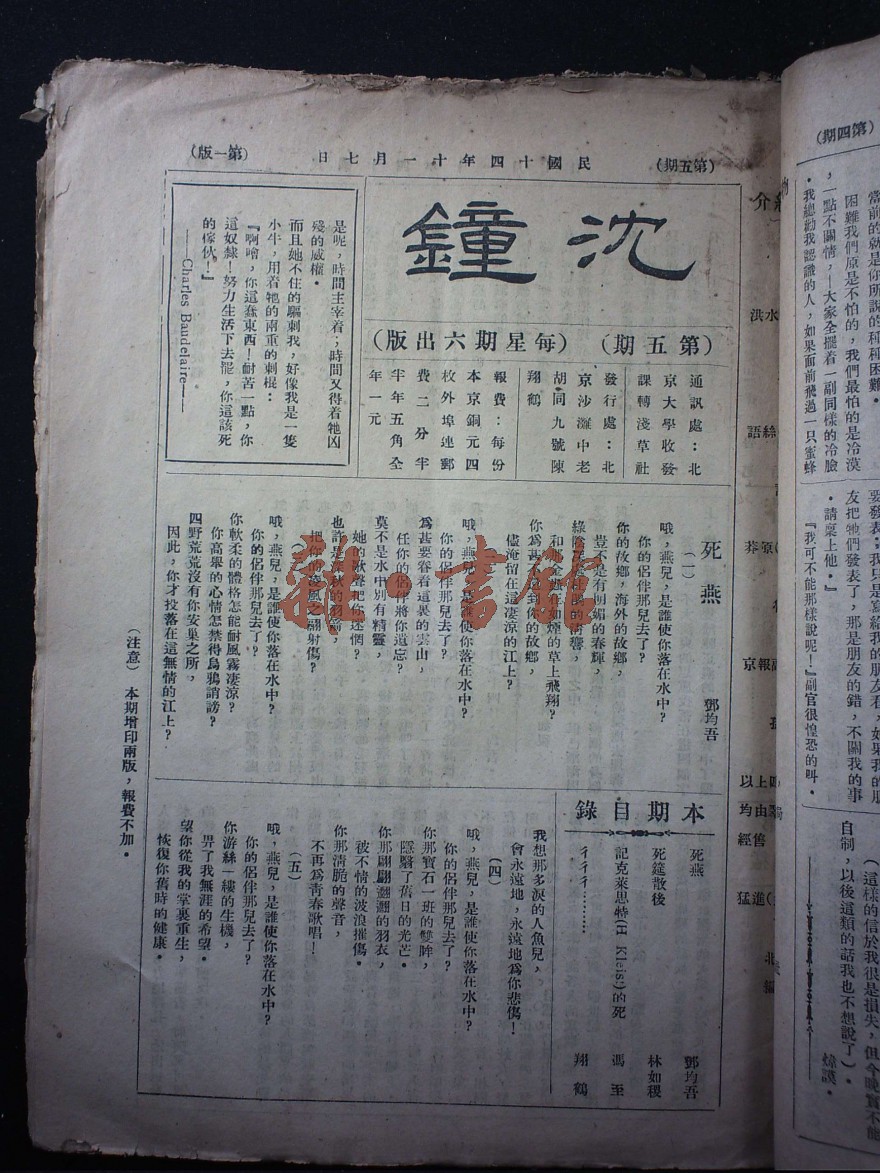 (第五期)
民國十四年十一月七日
(第一版)
沈鐘
(第五期)
(每星期六出版)
通訊處：北
京大學收發
課轉淺草社
發行處：北
京沙灘中老
胡同九號陳
翔鶴
報費：每份
本京銅元四
枚外埠連郵
費二分半
半年五角全
年一元
是呢，時間主宰着；時間又得着牠凶
殘的威權。
而且她不住的驅刺我，好像我是一隻
小牛，用着牠的兩重的刺棍：
『啊噲，你這蠢東西！耐苦一點，你
這奴隸！努力生活下去罷，你這該死
的傢伙！』
——Charles Baudelaire——
死燕
鄧均吾
(一)
哦，燕兒，是誰使你落在水中？
你的侶伴那兒去了？
你的故鄉，海外的故鄉，
豈不是有明媚的春輝，
草上飛翔？
你為甚不
你的故鄉，
儘淹留在這凄涼的江上？
哦，燕兒，是誰使你落在水中？
你的侶伴那兒去了？
為甚要眷着這裏的雲山，
任你的侶伴將你遺忘？
莫不是水中別有精靈，
她的歌聲把你迷惘？
也許是
把你的凌風之翮射傷？
哦，燕兒，是誰使你落在水中？
你的侶伴那兒去了？
你軟柔的體格怎能耐風霧凄涼？
你高舉的心情怎禁得烏鴉誚謗？
四野荒荒沒有你安巢之所，
因此，你才投落在這無情的江上？
雜·書館
本期目錄
死燕
鄧均吾
死筵散後
林如稷
記克萊思特(H Kleist)的死
馮至
彳彳彳………
翔鶴
我想那多淚的人魚兒，
會永遠地，永遠地為你悲傷！
(四)
哦，燕兒，是誰使你落在水中？
你的侶伴那兒去了？
你那寶石一班的雙眸，
隱翳了舊日的光芒。
你那翩翩灑灑的羽衣，
被不情的波浪摧傷。
你那清脆的聲音，
不再為青春歌唱！
(五)
哦，燕兒，是誰使你落在水中？
你的侶伴那兒去了？
你游絲一縷的生機，
畀了我無涯的希望。
望你從我的掌裏重生，
恢復你舊時的健康。
(注意) 本期增印兩版，報費不加。
(第四期)
當前的就是你所說的種種困難。
困難我們原是不怕的，我們最怕的是冷漠
，一點不關情，——大家全擺着一副同樣的冷臉
。我總勸我認識的人，如果面前飛過一只蜜蜂
要發表；我只是寫給我的朋友看，如果我的朋
友把牠們發表了，那是朋友的錯，不關我的事
。請稟上他。』
『我可不能那樣說呢！』副官很惶恐的叫。
(這樣的信於我很是損失，但今晚實不能
自制，以後這類的話我也不想說了)。
煒謨。